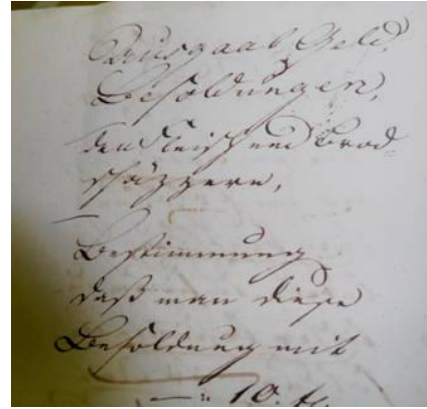 Ausgaab Geld,
Besoldungen,
den Fleisch und Brod
schäzzern,
Bestimmung
daß man diese
Besoldung mit
—: 10. fl.